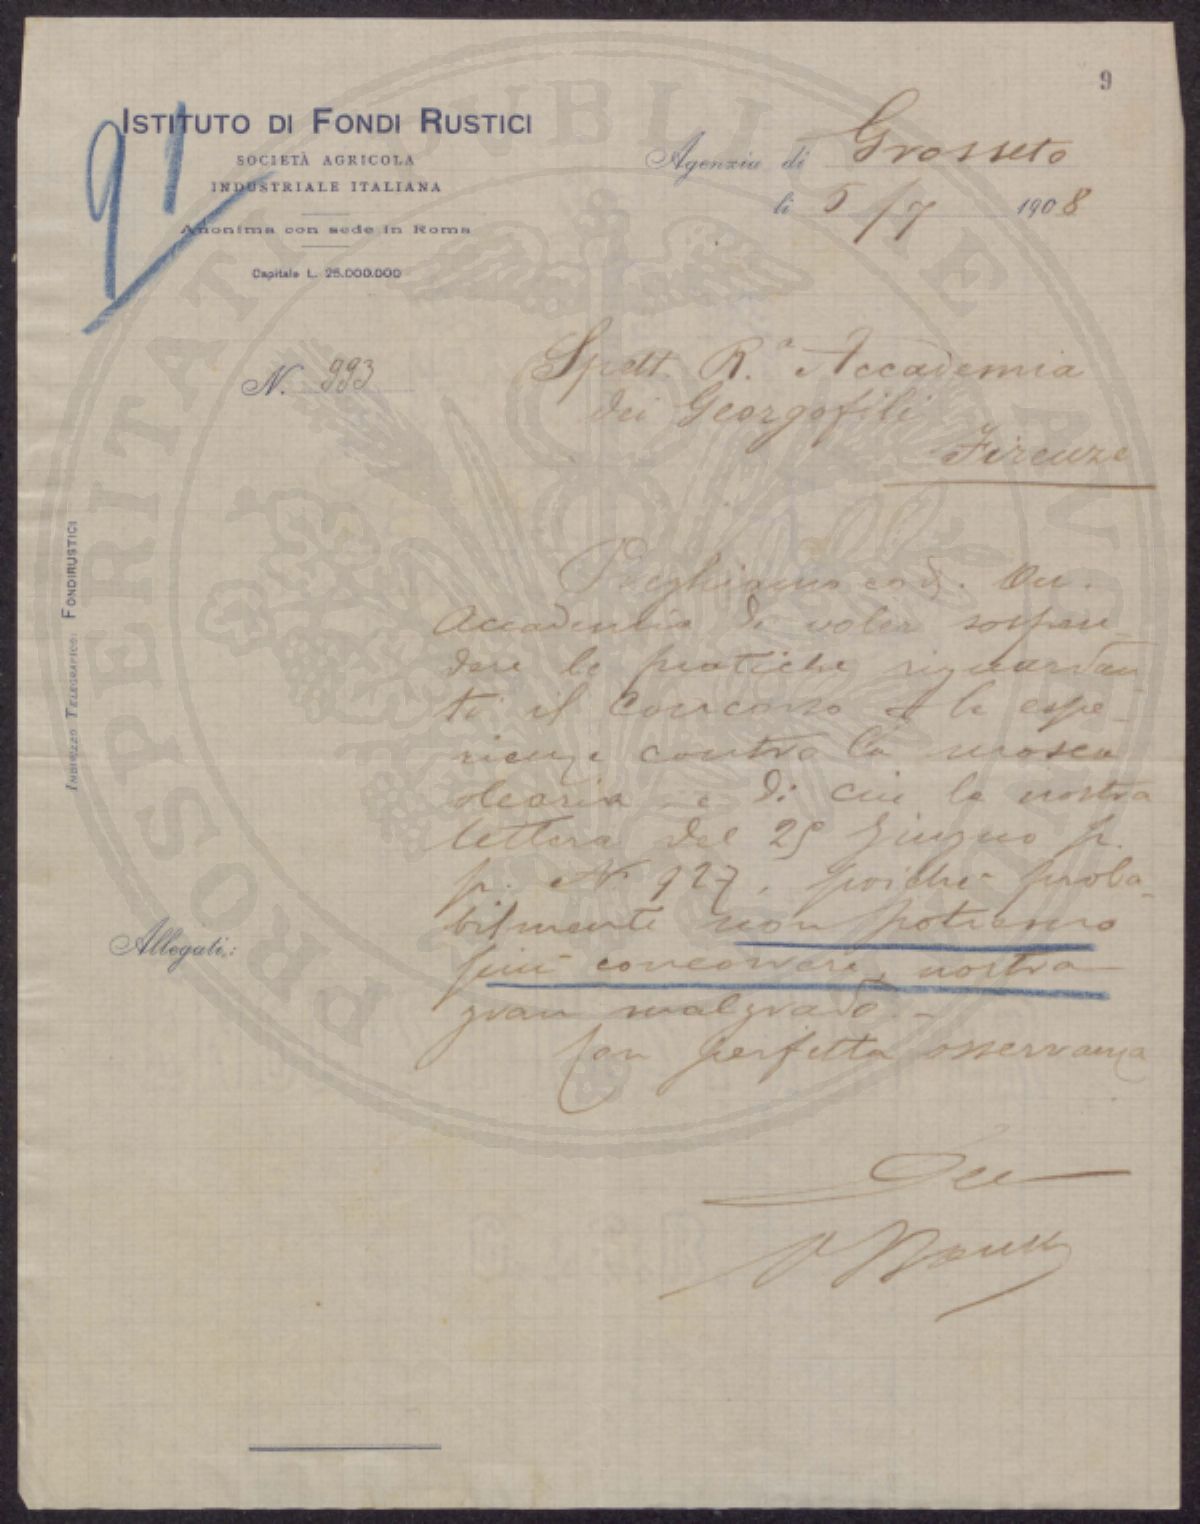 9
ISTITUTO DI FONDI RUSTICI
SOCIETÀ AGRICOLA
INDUSTRIALE ITALIANA
Anonima con sede in Roma
Capitale L. 25.000.000
91
Agenzia di Grosseto
li 5/7 1908
N. 993
Spett. R.a Accademia
dei Georgofili
Firenze
INDIRIZZO TELEGRAFICO: FONDIRUSTICI
Preghiamo cod. On.
Accademia di voler sospen-
dere le pratiche riguardan-
ti il Concorso e le espe-
rienze contro la mosca
olearia e di cui la nostra
lettera del 29 Giugno p.
p. N 927, poichè proba-
bilmente non potremo
più concorrere, nostro
gran malgrado.-
Con perfetta osservanza
Allegati:
PROSPERITATI PUBLICAE